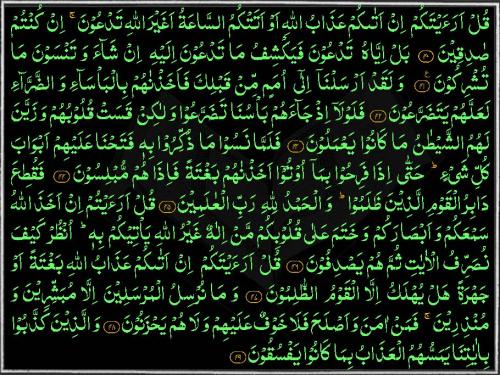 قُلْ اَرَءَيْتَكُمْ اِنْ اَتٰىكُمْ عَذَابُ اللّٰهِ اَوْ اَتَتْكُمُ السَّاعَةُ اَغَيْرَ اللّٰهِ تَدْعُوْنَ ۚ اِنْ كُنْتُمْ
صٰدِقِيْنَ ﴿۴۰﴾ بَلْ اِيَّاهُ تَدْعُوْنَ فَيَكْشِفُ مَا تَدْعُوْنَ اِلَيْهِ اِنْ شَآءَ وَ تَنْسَوْنَ مَا
تُشْرِكُوْنَ ﴿۴۱﴾ وَ لَقَدْ اَرْسَلْنَاۤ اِلٰۤى اُمَمٍ مِّنْ قَبْلِكَ فَاَخَذْنٰهُمْ بِالْبَاْسَآءِ وَ الضَّرَّآءِ
لَعَلَّهُمْ يَتَضَرَّعُوْنَ ﴿۴۲﴾ فَلَوْلَاۤ اِذْ جَآءَهُمْ بَاْسُنَا تَضَرَّعُوْا وَ لٰكِنْ قَسَتْ قُلُوْبُهُمْ وَ زَيَّنَ
لَهُمُ الشَّيْطٰنُ مَا كَانُوْا يَعْمَلُوْنَ ﴿۴۳﴾ فَلَمَّا نَسُوْا مَا ذُكِّرُوْا بِهٖ فَتَحْنَا عَلَيْهِمْ اَبْوَابَ
كُلِّ شَيْءٍ ؕ حَتّٰۤى اِذَا فَرِحُوْا بِمَاۤ اُوْتُوْۤا اَخَذْنٰهُمْ بَغْتَةً فَاِذَا هُمْ مُّبْلِسُوْنَ ﴿۴۴﴾ فَقُطِعَ
دَابِرُ الْقَوْمِ الَّذِيْنَ ظَلَمُوْا ؕ وَ الْحَمْدُ لِلّٰهِ رَبِّ الْعٰلَمِيْنَ ﴿۴۵﴾ قُلْ اَرَءَيْتُمْ اِنْ اَخَذَ اللّٰهُ
سَمْعَكُمْ وَ اَبْصَارَكُمْ وَ خَتَمَ عَلٰى قُلُوْبِكُمْ مَّنْ اِلٰهٌ غَيْرُ اللّٰهِ يَاْتِيْكُمْ بِهٖ ؕ اُنْظُرْ كَيْفَ
نُصَرِّفُ الْاٰيٰتِ ثُمَّ هُمْ يَصْدِفُوْنَ ﴿۴۶﴾ قُلْ اَرَءَيْتَكُمْ اِنْ اَتٰىكُمْ عَذَابُ اللّٰهِ بَغْتَةً اَوْ
جَهْرَةً هَلْ يُهْلَكُ اِلَّا الْقَوْمُ الظّٰلِمُوْنَ ﴿۴۷﴾ وَ مَا نُرْسِلُ الْمُرْسَلِيْنَ اِلَّا مُبَشِّرِيْنَ وَ
مُنْذِرِيْنَ ۚ فَمَنْ اٰمَنَ وَ اَصْلَحَ فَلَا خَوْفٌ عَلَيْهِمْ وَ لَا هُمْ يَحْزَنُوْنَ ﴿۴۸﴾ وَ الَّذِيْنَ كَذَّبُوْا
بِاٰيٰتِنَا يَمَسُّهُمُ الْعَذَابُ بِمَا كَانُوْا يَفْسُقُوْنَ ﴿۴۹﴾